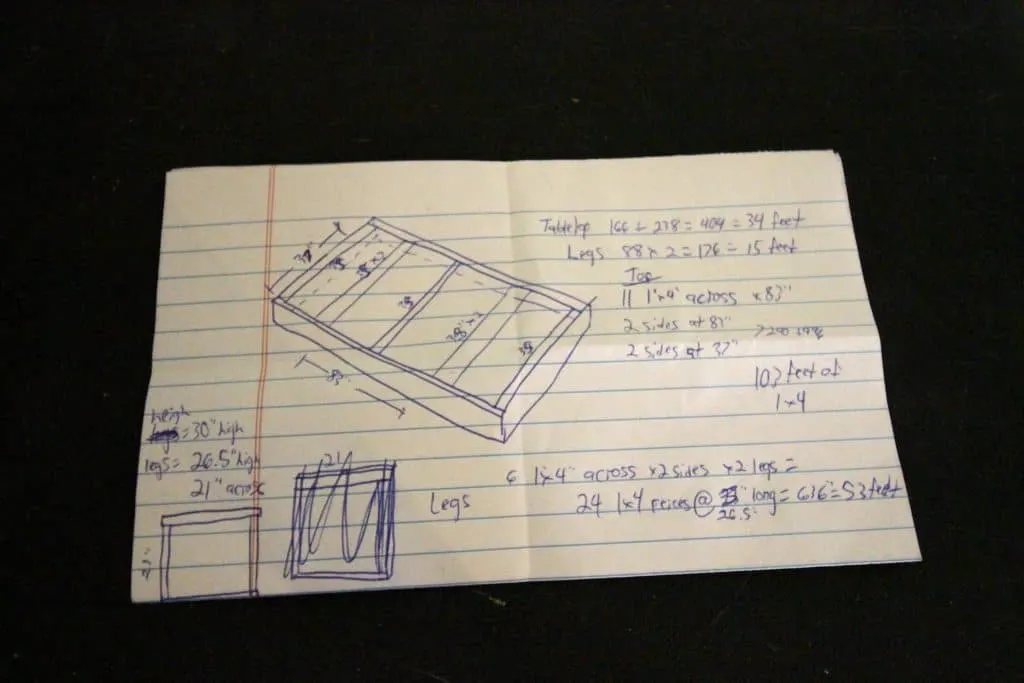 Tabletop 166 + 238 = 404 = 34 feet
Legs 88 x 2 = 176 = 15 feet
Top
11 1"x4" across x 83"
2 sides at 83"
2 sides at 37"
103 feet of
1x4
38" x 2
heigh
= 30" high
legs = 26.5" high
21" across
21
Legs
6 1"x4" across x2 sides x2 legs =
24 1x4 peices @ " long = 636" = 53 feet
26.5